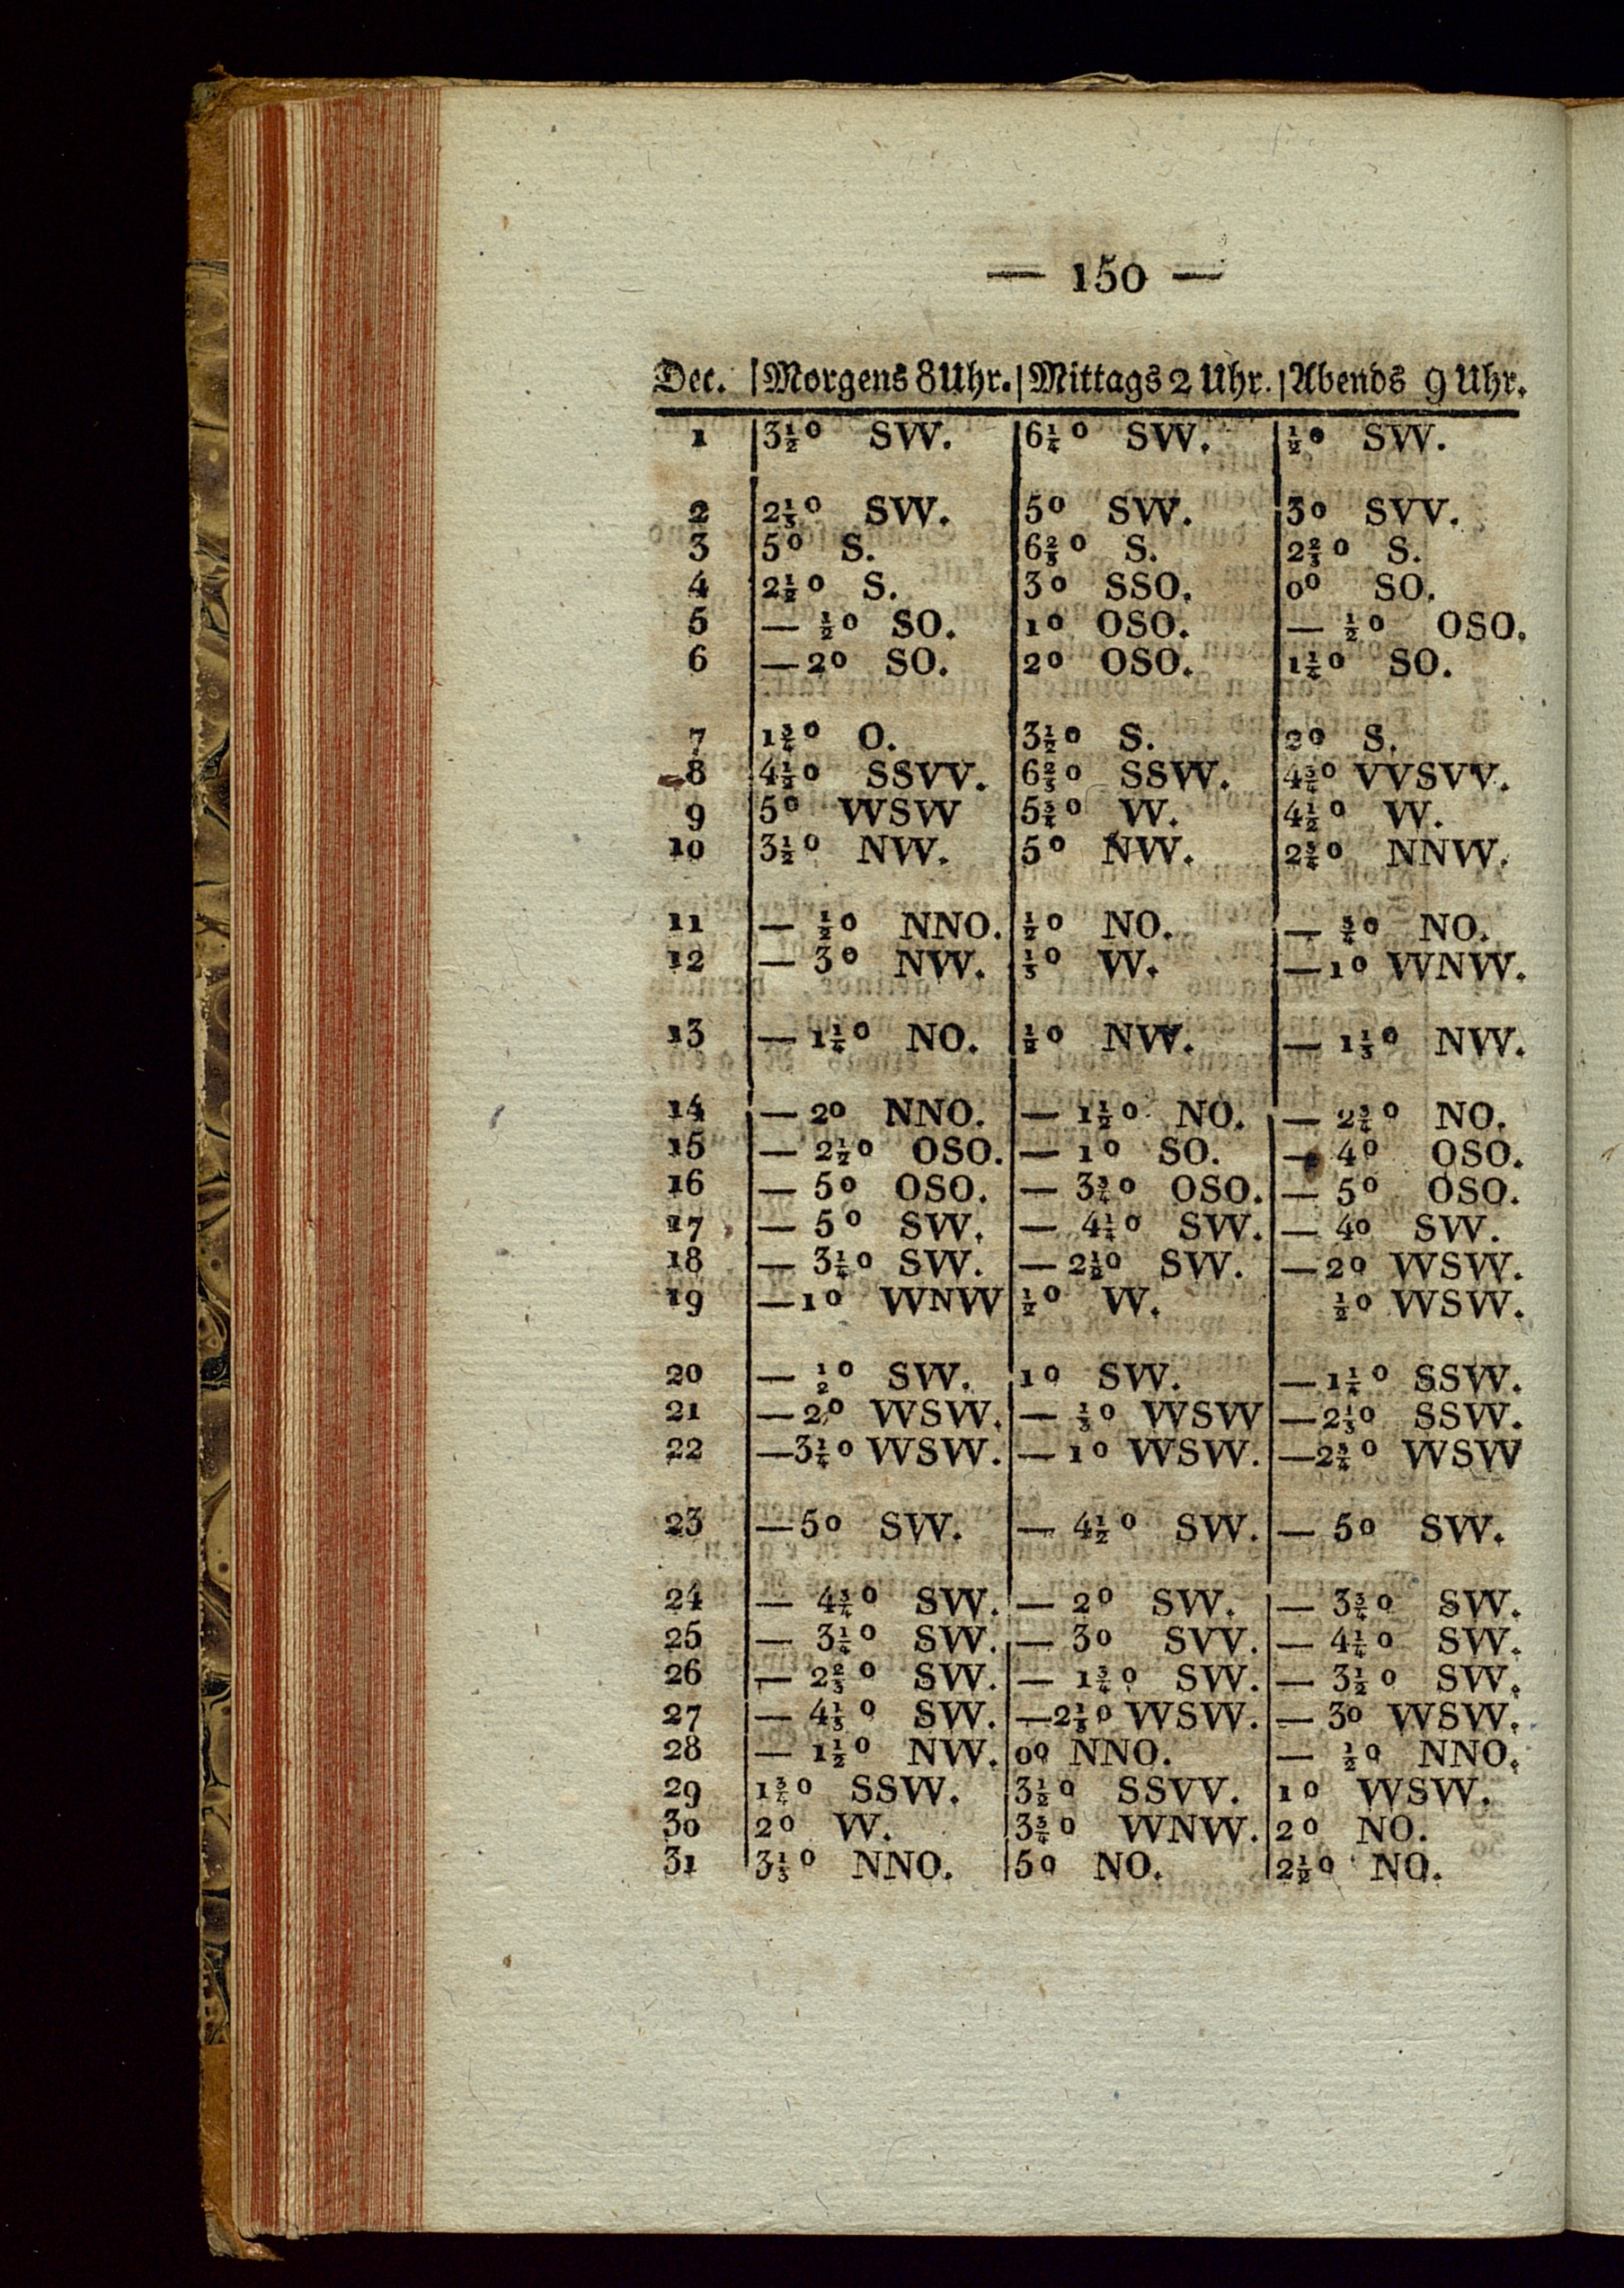 — 150 —
Dec. | Morgens 8 Uhr. | Mittags 2 Uhr. | Abends 9 Uhr.
1 | 3½° SW. | 6¼° SW. | ½° SW.
2 | 2⅓° SW. | 5° SW. | 3° SW.
3 | 5° S. | 6⅔° S. | 2⅔° S.
4 | 2½° S. | 3° SSO. | 0° SO.
5 | — ½° SO. | 1° OSO. | — ½° OSO.
6 | — 2° SO. | 2° OSO. | 1¼° SO.
7 | 1¾° O. | 3½° S. | 2° S.
8 | 4½° SSW. | 6⅔° SSW. | 4¾° WSW.
9 | 5° WSW | 5¾° W. | 4½° W.
10 | 3½° NW. | 5° NW. | 2¾° NNW.
11 | — ½° NNO. | ½° NO. | — ¾° NO.
12 | — 3° NW. | ⅓° W. | — 1° WNW.
13 | — 1¼° NO. | ½° NW. | — 1⅓° NW.
14 | — 2° NNO. | — 1½° NO. | — 2¾° NO.
15 | — 2½° OSO. | — 1° SO. | — 4° OSO.
16 | — 5° OSO. | — 3¾° OSO. | — 5° OSO.
17 | — 5° SW. | — 4¼° SW. | — 4° SW.
18 | — 3¼° SW. | — 2½° SW. | — 2° WSW.
19 | — 1° WNW | ½° W. | ½° WSW.
20 | — ½° SW. | 1° SW. | — 1¼° SSW.
21 | — 2° WSW. | — ⅓° WSW | — 2⅓° SSW.
22 | — 3¼° WSW. | — 1° WSW. | — 2¾° WSW
23 | — 5° SW. | — 4½° SW. | — 5° SW.
24 | — 4¾° SW. | — 2° SW. | — 3¾° SW.
25 | — 3¼° SW. | — 3° SW. | — 4¼° SW.
26 | — 2⅔° SW. | — 1¾° SW. | — 3½° SW.
27 | — 4⅓° SW. | — 2⅓° WSW. | — 3° WSW.
28 | — 1½° NW. | 0° NNO. | — ½° NNO.
29 | 1¾° SSW. | 3½° SSW. | 1° WSW.
30 | 2° W. | 3¾° WNW. | 2° NO.
31 | 3⅓° NNO. | 5° NO. | 2½° NO.